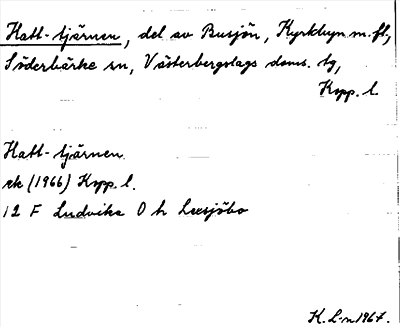 Hatt-tjärnen, del av Busjön, Kyrkbyn m.fl.,
Söderbärke sn, Västerbergslags doms. tg,
Kopp. l.
Hatt-tjärnen
ek (1966) Kopp. l.
12 F Ludvika 0 h Leksjöbo
K. L-n 1967.